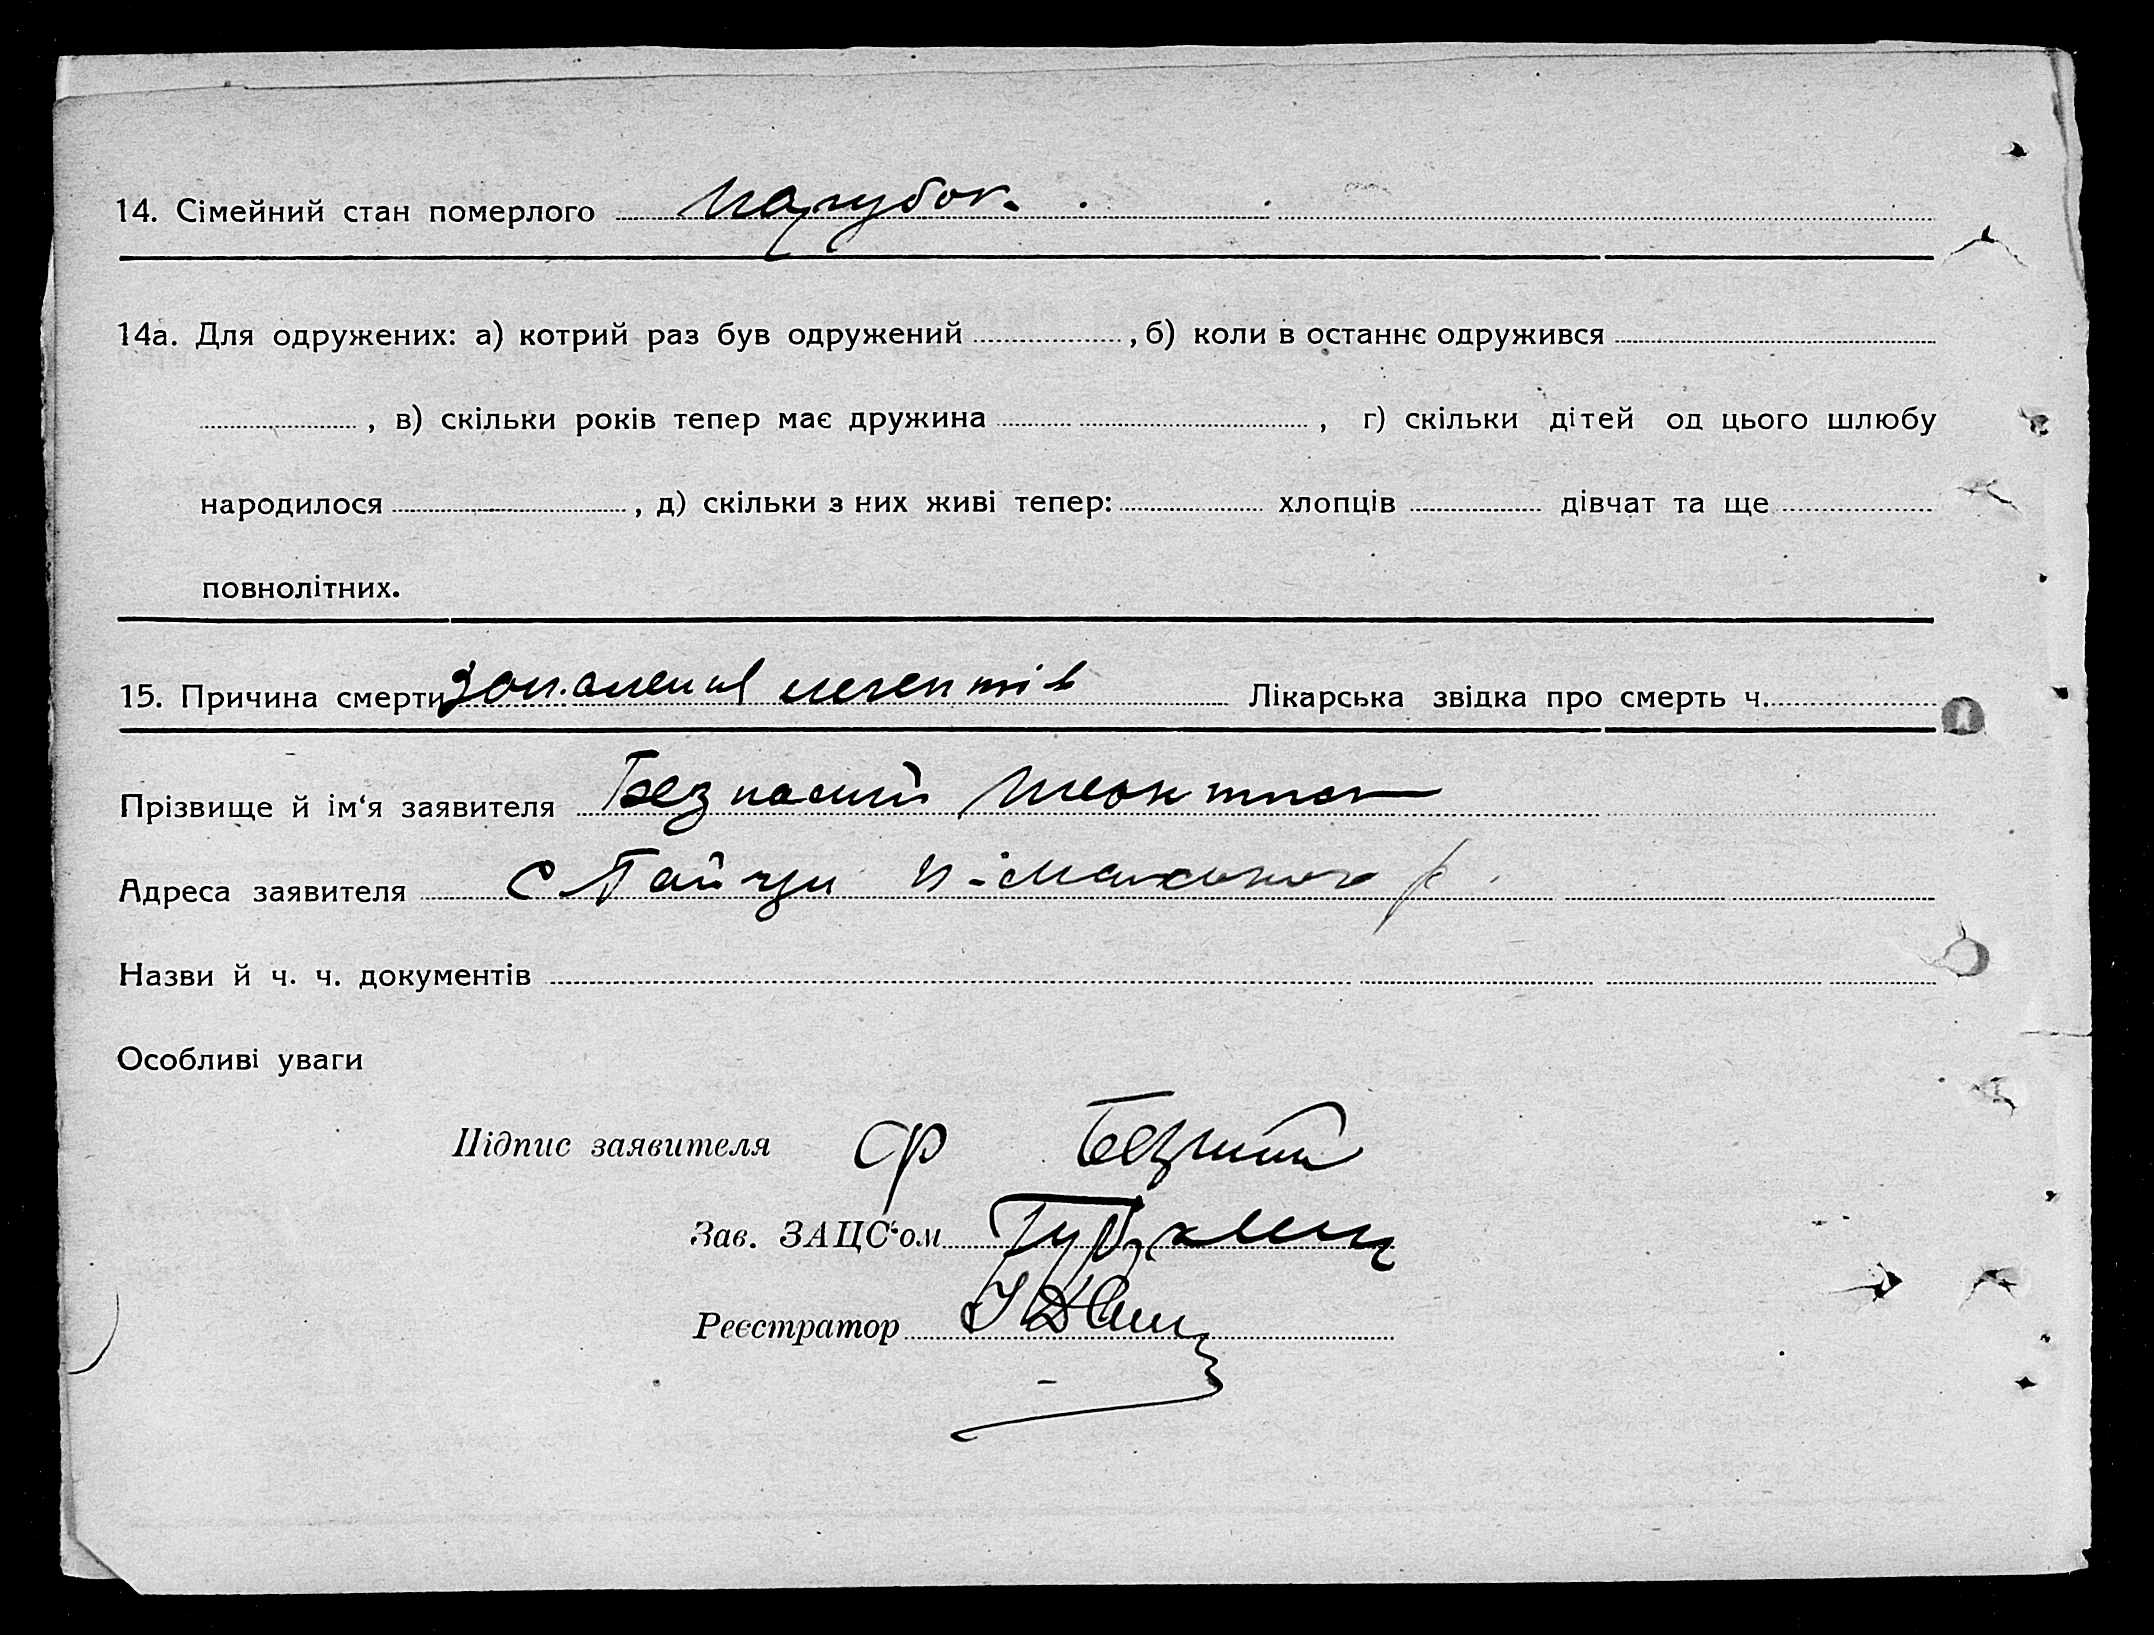 14. Сімейний стан померлого парубок.
14а. Для одружених: а) котрий раз був одружений , б) коли в останнє одружився
, в) скільки років тепер має дружина , г) скільки дітей од цього шлюбу
народилося , д) скільки з них живі тепер: хлопців дівчат та ще
повнолітних.
15. Причина смерти запаления легентів Лікарська звідка про смерть ч.
Прізвище й ім‘я заявителя
Адреса заявителя с Гайчи
Назви й ч. ч. документів
Особливі уваги
Підпис заявителя
Зав. ЗАЦС‘ом
Реєстратор